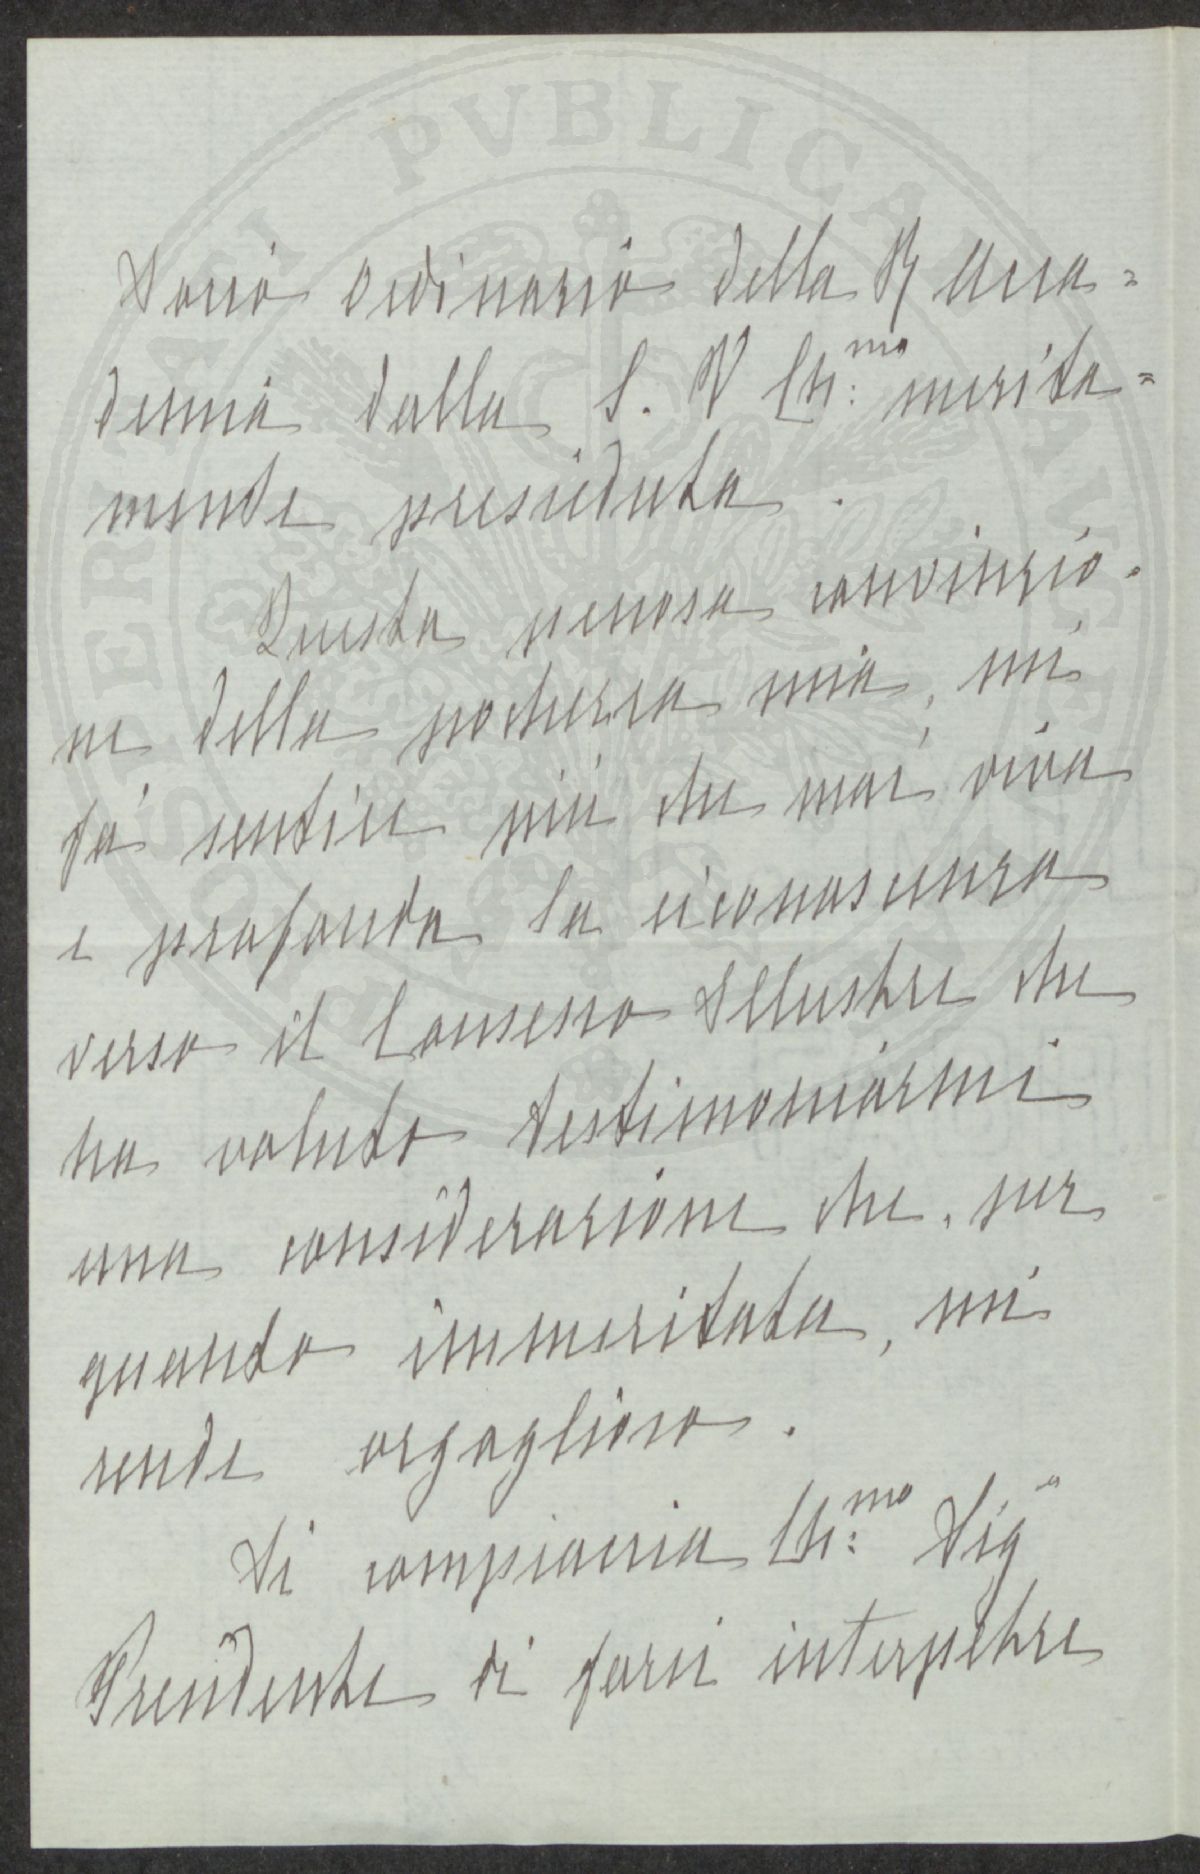 Socio Ordinario della R Acca=
demia dalla S. V Ch:mo merita=
mente presieduta.
Questa penosa convinzio-
ne della pochezza mia, mi
fà sentire più che mai viva
e profonda la riconoscenza
verso il Consesso Illustre che
ha voluto testimoniarmi
una considerazione che, per
quanto immeritata, mi
rende orgoglioso.
Si compiaccia Ch:mo Sig
Presidente di farsi interpetre